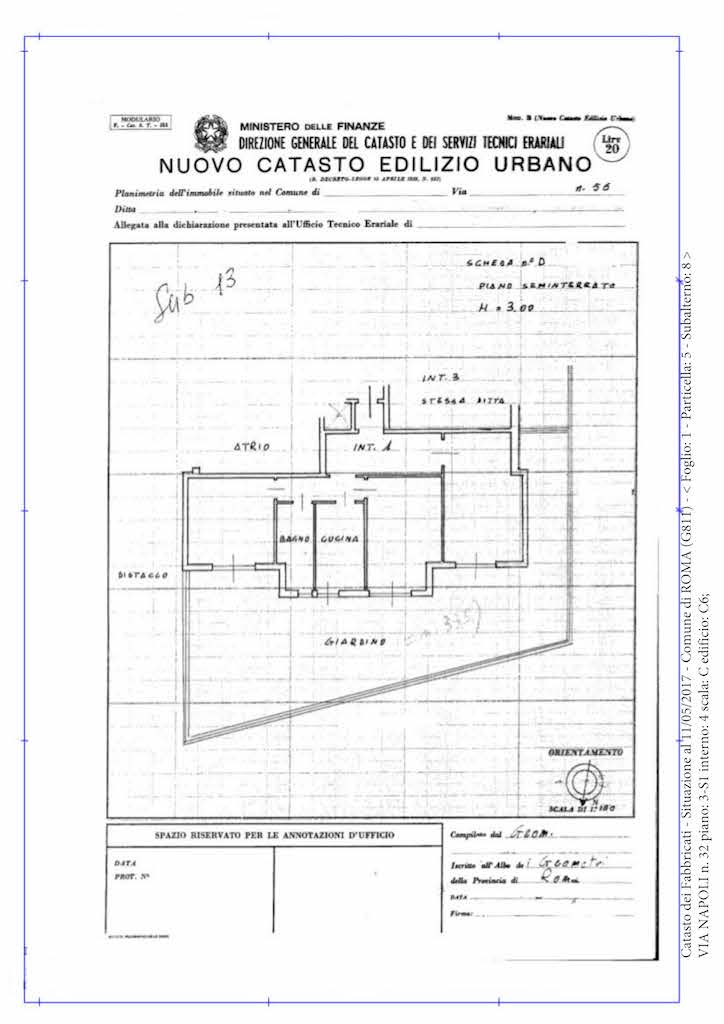 MODULARIO
F. - Cat. S. T. - 315
MINISTERO DELLE FINANZE
DIREZIONE GENERALE DEL CATASTO E DEI SERVIZI TECNICI ERARIALI
NUOVO CATASTO EDILIZIO URBANO
Mod. B (Nuovo Catasto Edilizio Urbano)
Lire
20
Planimetria dell'immobile situato nel Comune di Via n. 56
Ditta
Allegata alla dichiarazione presentata all'Ufficio Tecnico Erariale di
Sub 13
SCHEDA N° D
PIANO SEMINTERRATO
H = 3.00
INT. 3
STESSA DITTA
ATRIO
INT. 4
BAGNO
CUCINA
DISTACCO
GIARDINO
ORIENTAMENTO
N
SCALA DI 1:
SPAZIO RISERVATO PER LE ANNOTAZIONI D'UFFICIO
DATA
PROT. N°
Compilata dal Geom.
Iscritto all'Albo dei Geometri
della Provincia di Roma
DATA
Firma:
Catasto dei Fabbricati - Situazione al 11/05/2017 - Comune di ROMA (G811) - < Foglio: 1 - Particella: 5 - Subalterno: 8 >
VIA NAPOLI n. 32 piano: 3-S1 interno: 4 scala: C edificio: C6;